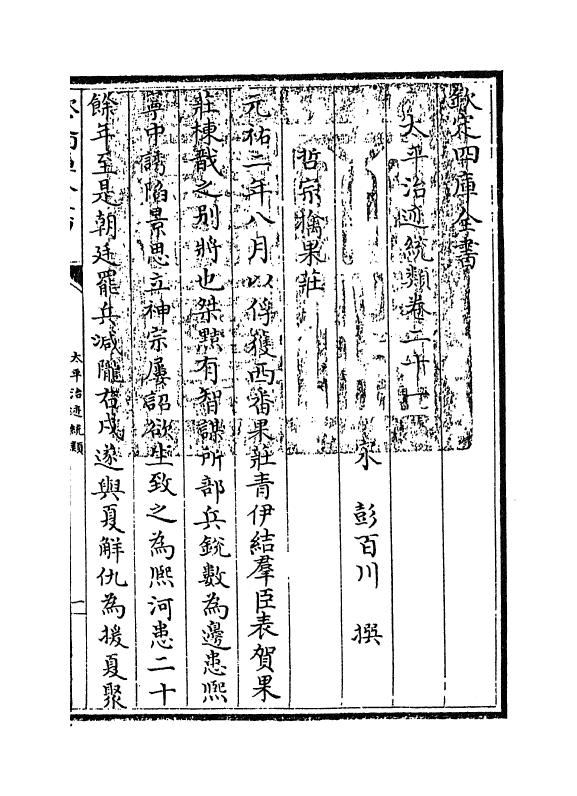 欽定四庫全書
太平治迹統類卷二十一
宋 彭百川 撰
哲宗擒果莊
元祐二年八月以俘獲西番果莊青伊結羣臣表賀果
莊棟戩之别將也桀黠有智謀所部兵銳數為邊患熙
寧中誘陷景思立神宗屢詔欲生致之為熙河患二十
餘年至是朝廷罷兵減隴右戍遂與夏解仇為援夏聚
太平治迹統類